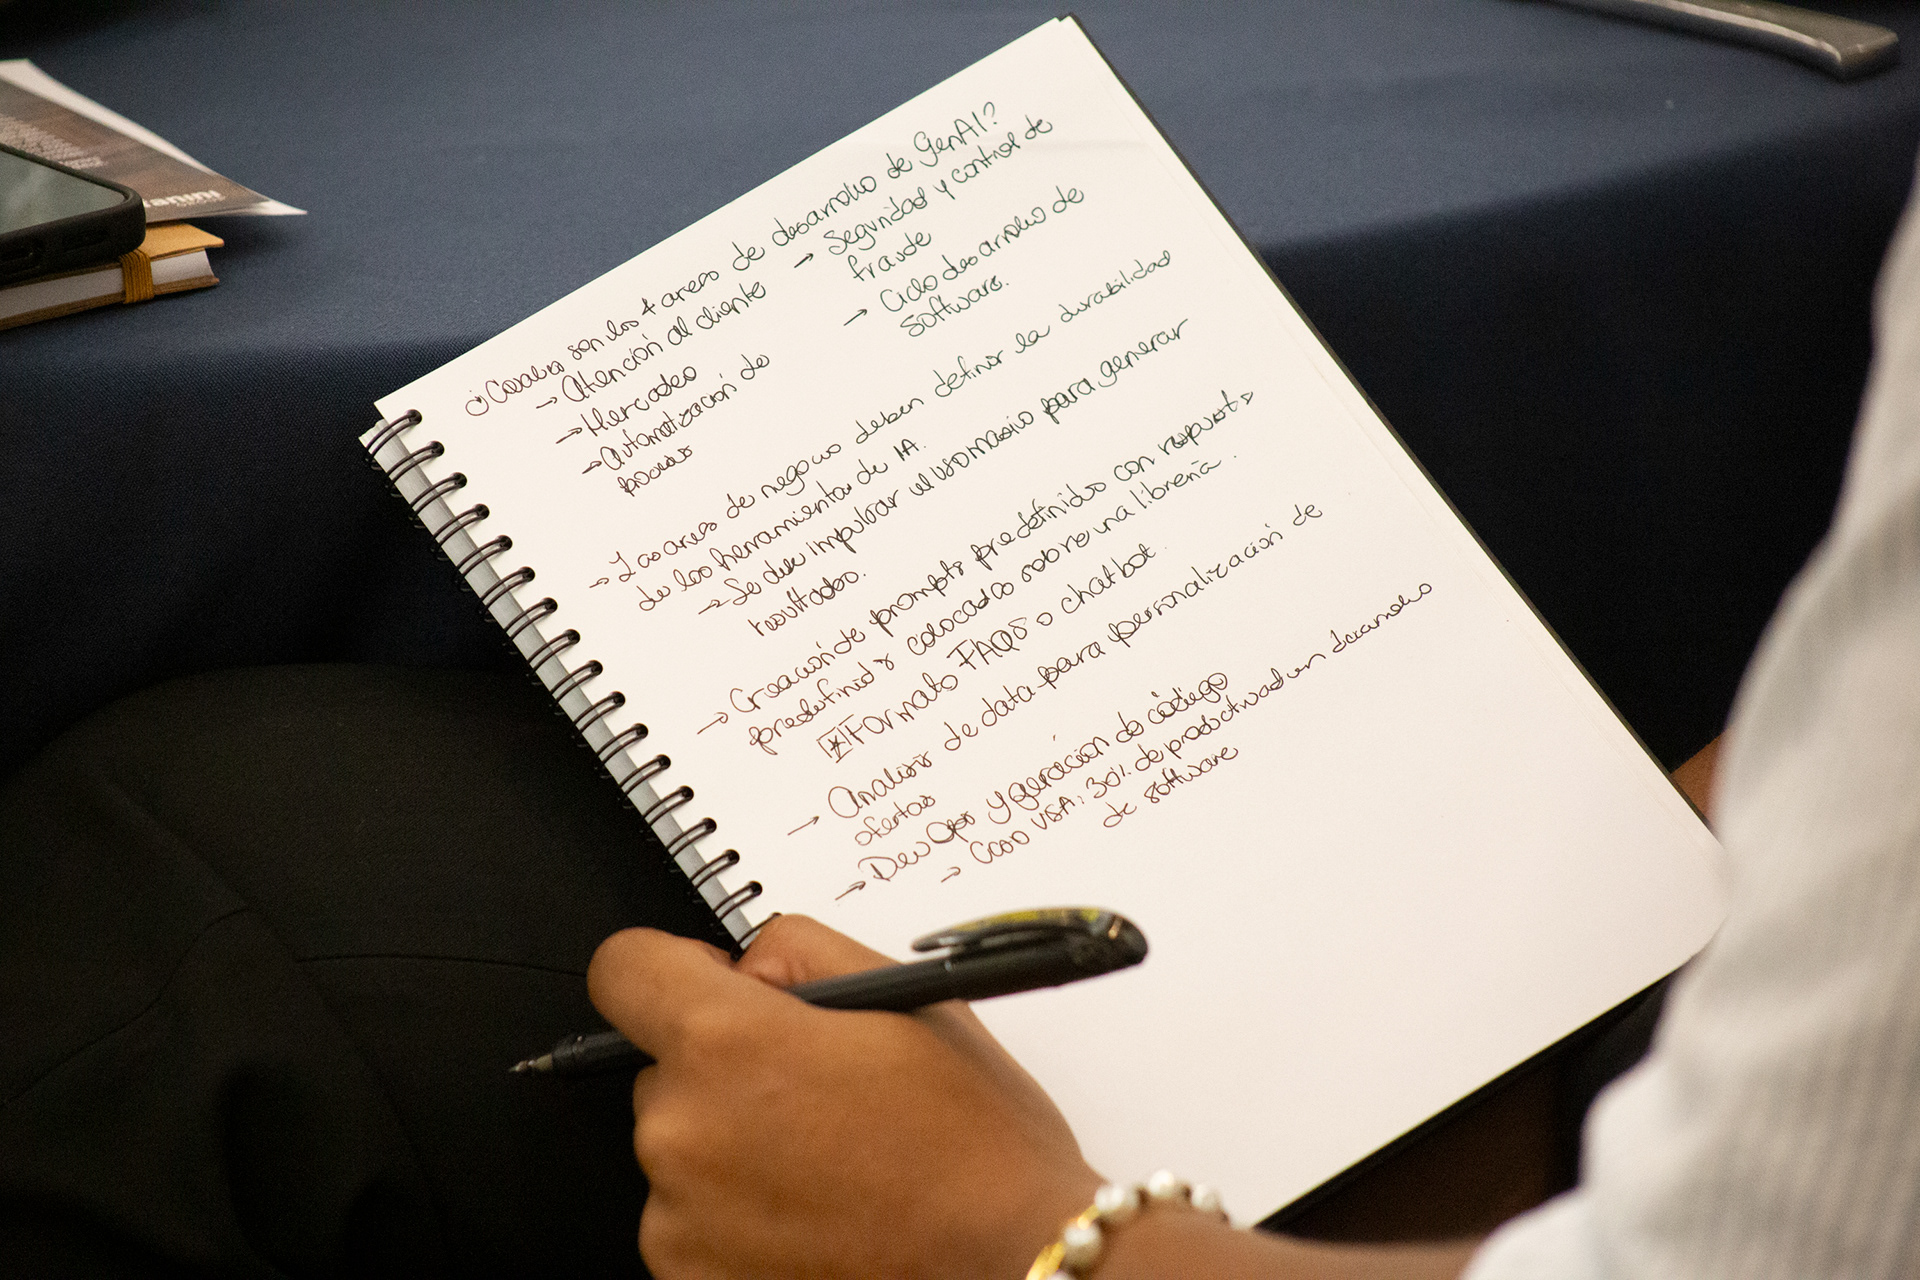 ¿Cuáles son las 4 areas de desarrollo de GenAI?
→ Atención al cliente
→ Mercadeo
→ Automatización de
procesos
→ Seguridad y control de
fraude
→ Ciclo desarrollo de
software.
→ Las areas de negocio deben definir la durabilidad
de las herramientas de IA.
→ Se debe impulsar el uso masivo para generar
resultados.
→ Creación de prompts predefinidos con respuestas
predefinidas colocadas sobre una libreria.
Formato FAQS o chatbot.
→ Analisis de data para personalización de
ofertas
→ DevOps y generación de código
→ Caso VISA: 30% de productividad en desarrollo
de software